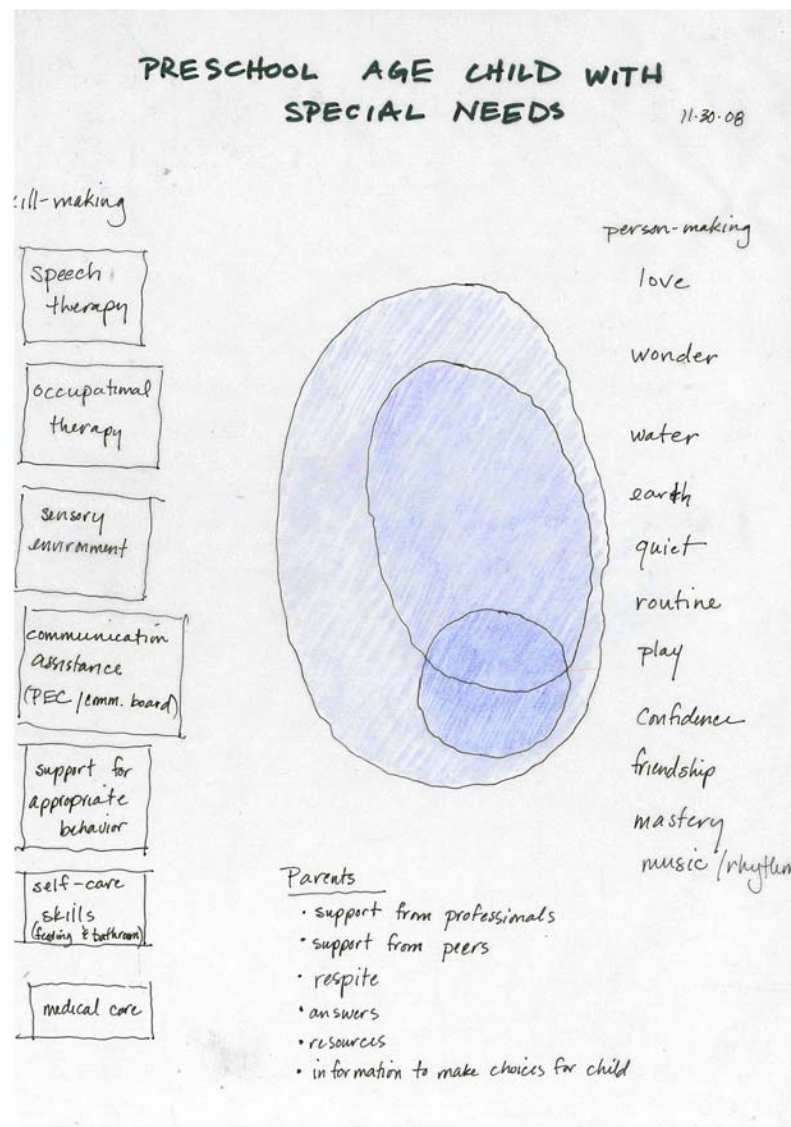 PRESCHOOL AGE CHILD WITH
SPECIAL NEEDS
11.30.08
ill-making
speech
therapy
occupational
therapy
sensory
environment
communication
assistance
(PEC/comm. board)
support for
appropriate
behavior
self-care
skills
(feeding & bathroom)
medical care
person-making
love
wonder
water
earth
quiet
routine
play
confidence
friendship
mastery
music/rhythm
Parents
• support from professionals
• support from peers
• respite
• answers
• resources
• information to make choices for child